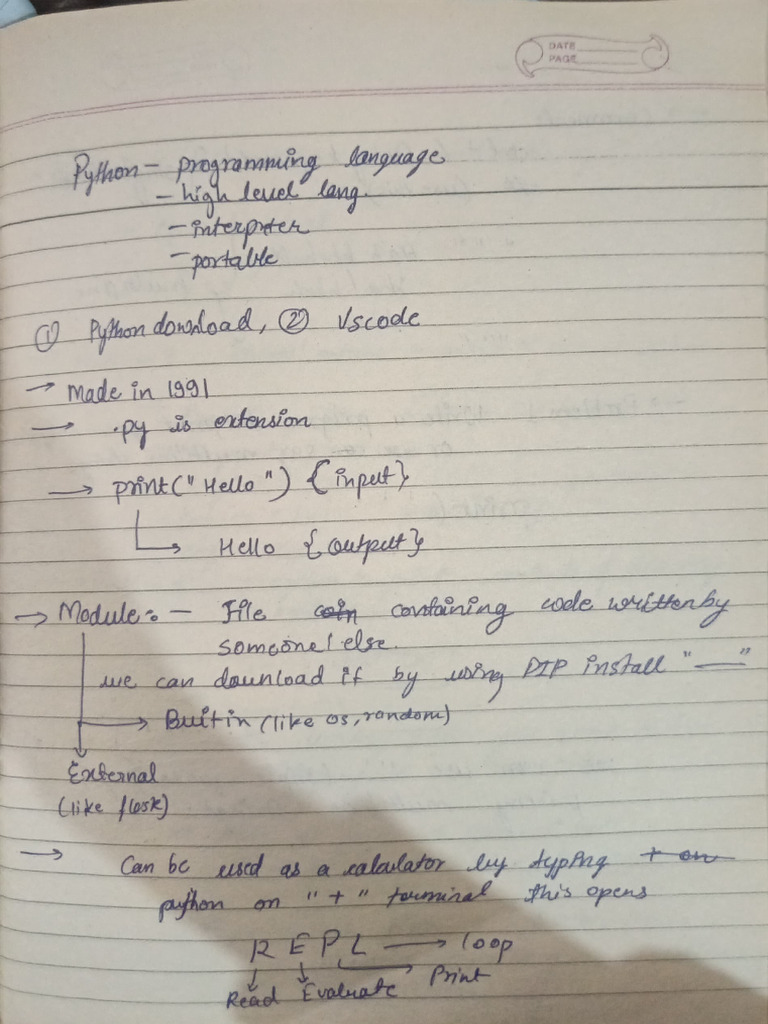 DATE
PAGE
Python - programming language
- high level lang.
- interpreter
- portable
① Python download, ② Vscode
→ Made in 1991
→ .py is extension
→ print("Hello") {input}
Hello {output}
→ Module:- File containing code written by
someone else.
we can download it by using PIP install "—"
→ Built in (like os, random)
External
(like flask)
→ Can be used as a calculator by typing
python on "+" terminal this opens
R E P L → loop
Read Evaluate Print